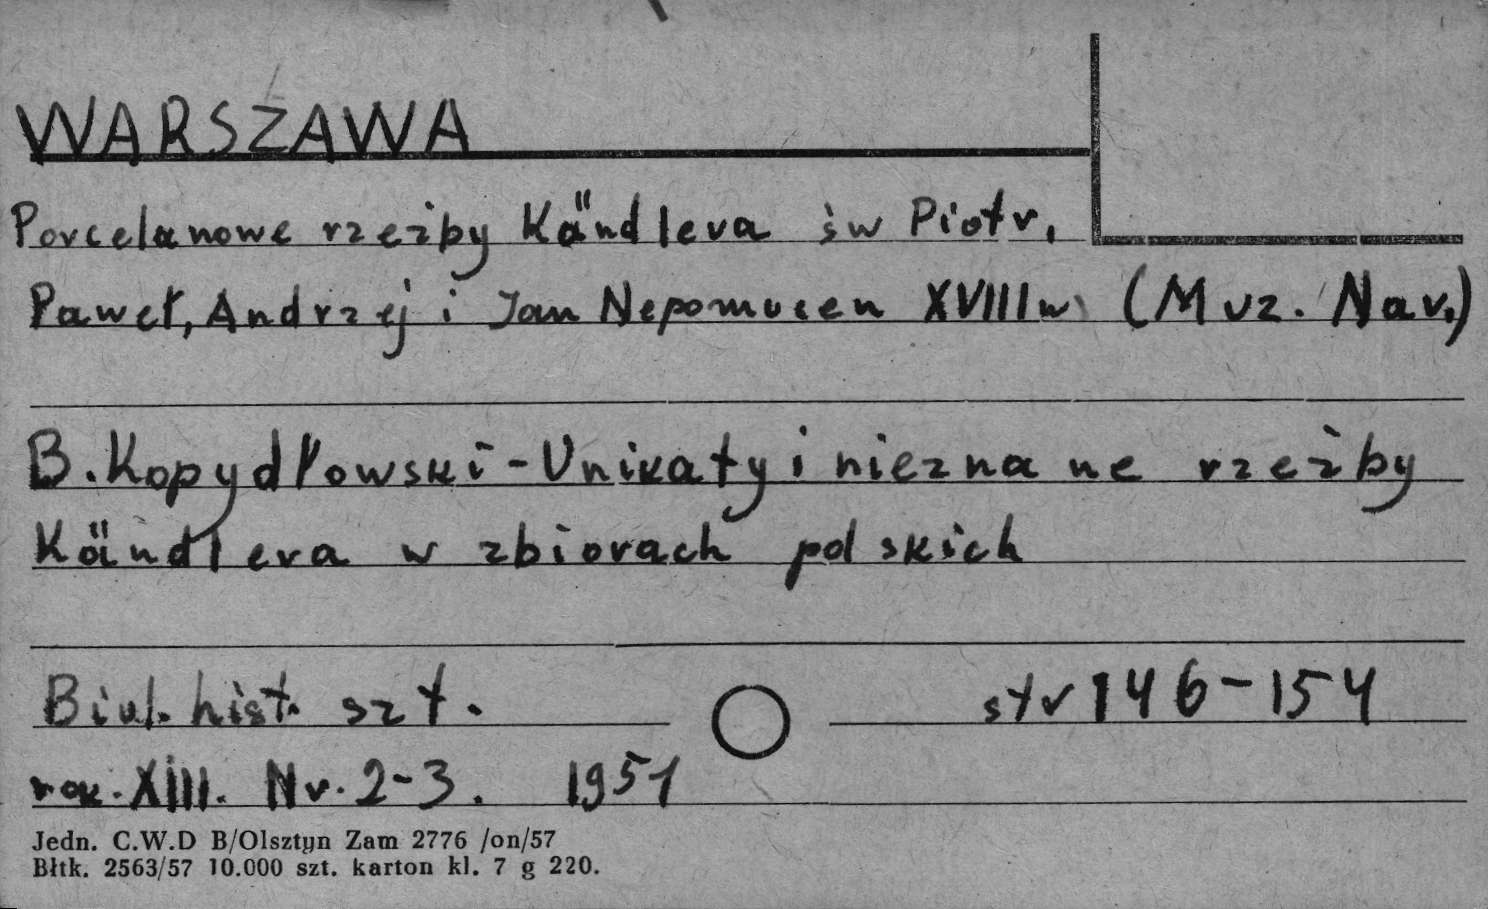 WARSZAWA
Porcelanowe rzeźby Kändlera św Piotr,
Paweł, Andrzej i Jan Nepomucen XVIII w (Muz. Nar.)
B. Kopydłowski - Unikaty i nieznane rzeźby
Kändlera w zbiorach polskich
Biul. hist. szt. str 146-154
rok. XIII. Nr. 2-3. 1951
Jedn. C.W.D B/Olsztyn Zam 2776 /on/57
Błtk. 2563/57 10.000 szt. karton kl. 7 g 220.